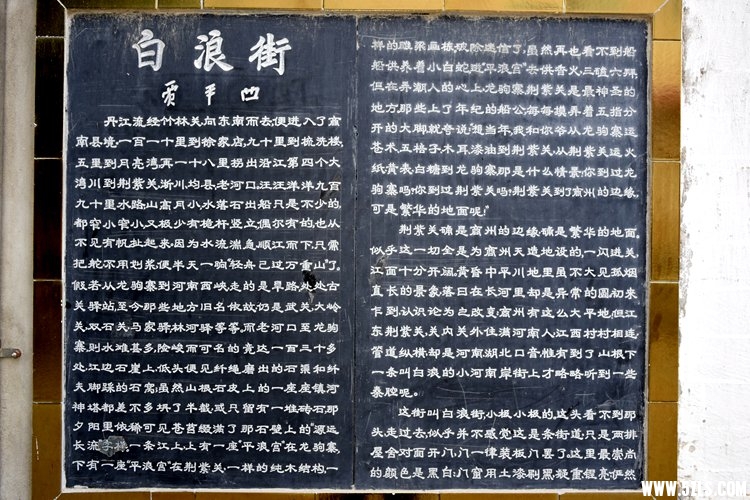 白浪街
贾平凹
丹江流经竹林关向东南而去便进入了商
南县境一百一十里到徐家店九十里到梳洗楼,
五里到月亮湾再一十八里拐出沿江第四个大
湾川到荆紫关淅川、均县、老河口,汪汪洋洋九百
九十里水路,山高月小,水落石出,船只是不少的,
都窄小窄小,又极少有桅杆竖立,偶尔有的,也从
不见有帆扯起来,因为水流湍急,顺江而下,只需
把舵不用划桨,便半天一晌“轻舟已过万重山”了。
假若从龙驹寨到河南西峡走的是旱路,处处古
关驿站,至今那些地方旧名依故,仍是武关、大岭
关、双石关、马家驿、林河驿等等,而老河口至龙驹
寨,则水滩甚多,险峻而可名的竟达一百三十多
处,江边石崖上低头便见纤绳磨出的石渠和纤
夫脚踩的石窝,虽然山根石皮上的一座座镇河
神塔都差不多坍了半截,或只留有一堆砖石,那
夕阳里依稀可见苍苔缀满了那石壁上的“源远
长流”字样,一条江上,上有一座“平浪宫”在龙驹寨,
下有一座“平浪宫”在荆紫关,一样的纯木结构,一
样的雕梁画栋,破除迷信了,虽然再也看不到船
船供养着小白蛇,进“平浪宫”去供香火,三磕六拜,
但在弄潮人的心上,龙驹寨、荆紫关是最神圣的
地方,那些上了年纪的船公每每摸弄着五指分
开的大脚,就夸说:想当年,我和你爷从龙驹寨运
苍术、五格子、木耳、漆油到荆紫关,从荆紫关运火
纸、黄表、白糖到龙驹寨,那是什么情景!你到过龙
驹寨吗?你到过荆紫关吗?荆紫关到了商州的边缘,
可是繁华的地面呢!
荆紫关确是商州的边缘,确是繁华的地面,
似乎这一切全是为商州天造地设的,一闪进关,
江面十分开阔,黄昏中平川地里虽不大见孤烟
直长的景象,落日在长河里却是异常的圆,初来
乍到,认识论为之改变,商州有这么大平地,但江
东荆紫关,关内关外住满河南人,江西村村相连,
管道纵横,却是河南、湖北口音,惟有到了山根下
一条叫白浪的小河南岸街上,才略略听到一些
秦腔呢。
这街叫白浪街,小极小极的,这头看不到那
头,走过去似乎并不感觉这是条街道,只是两排
屋舍对面开门,门一律装板门罢了,这里最崇尚
的颜色是黑白:门窗用土漆刷黑,凝重、锃亮,俨然
WWW.51LS.COM